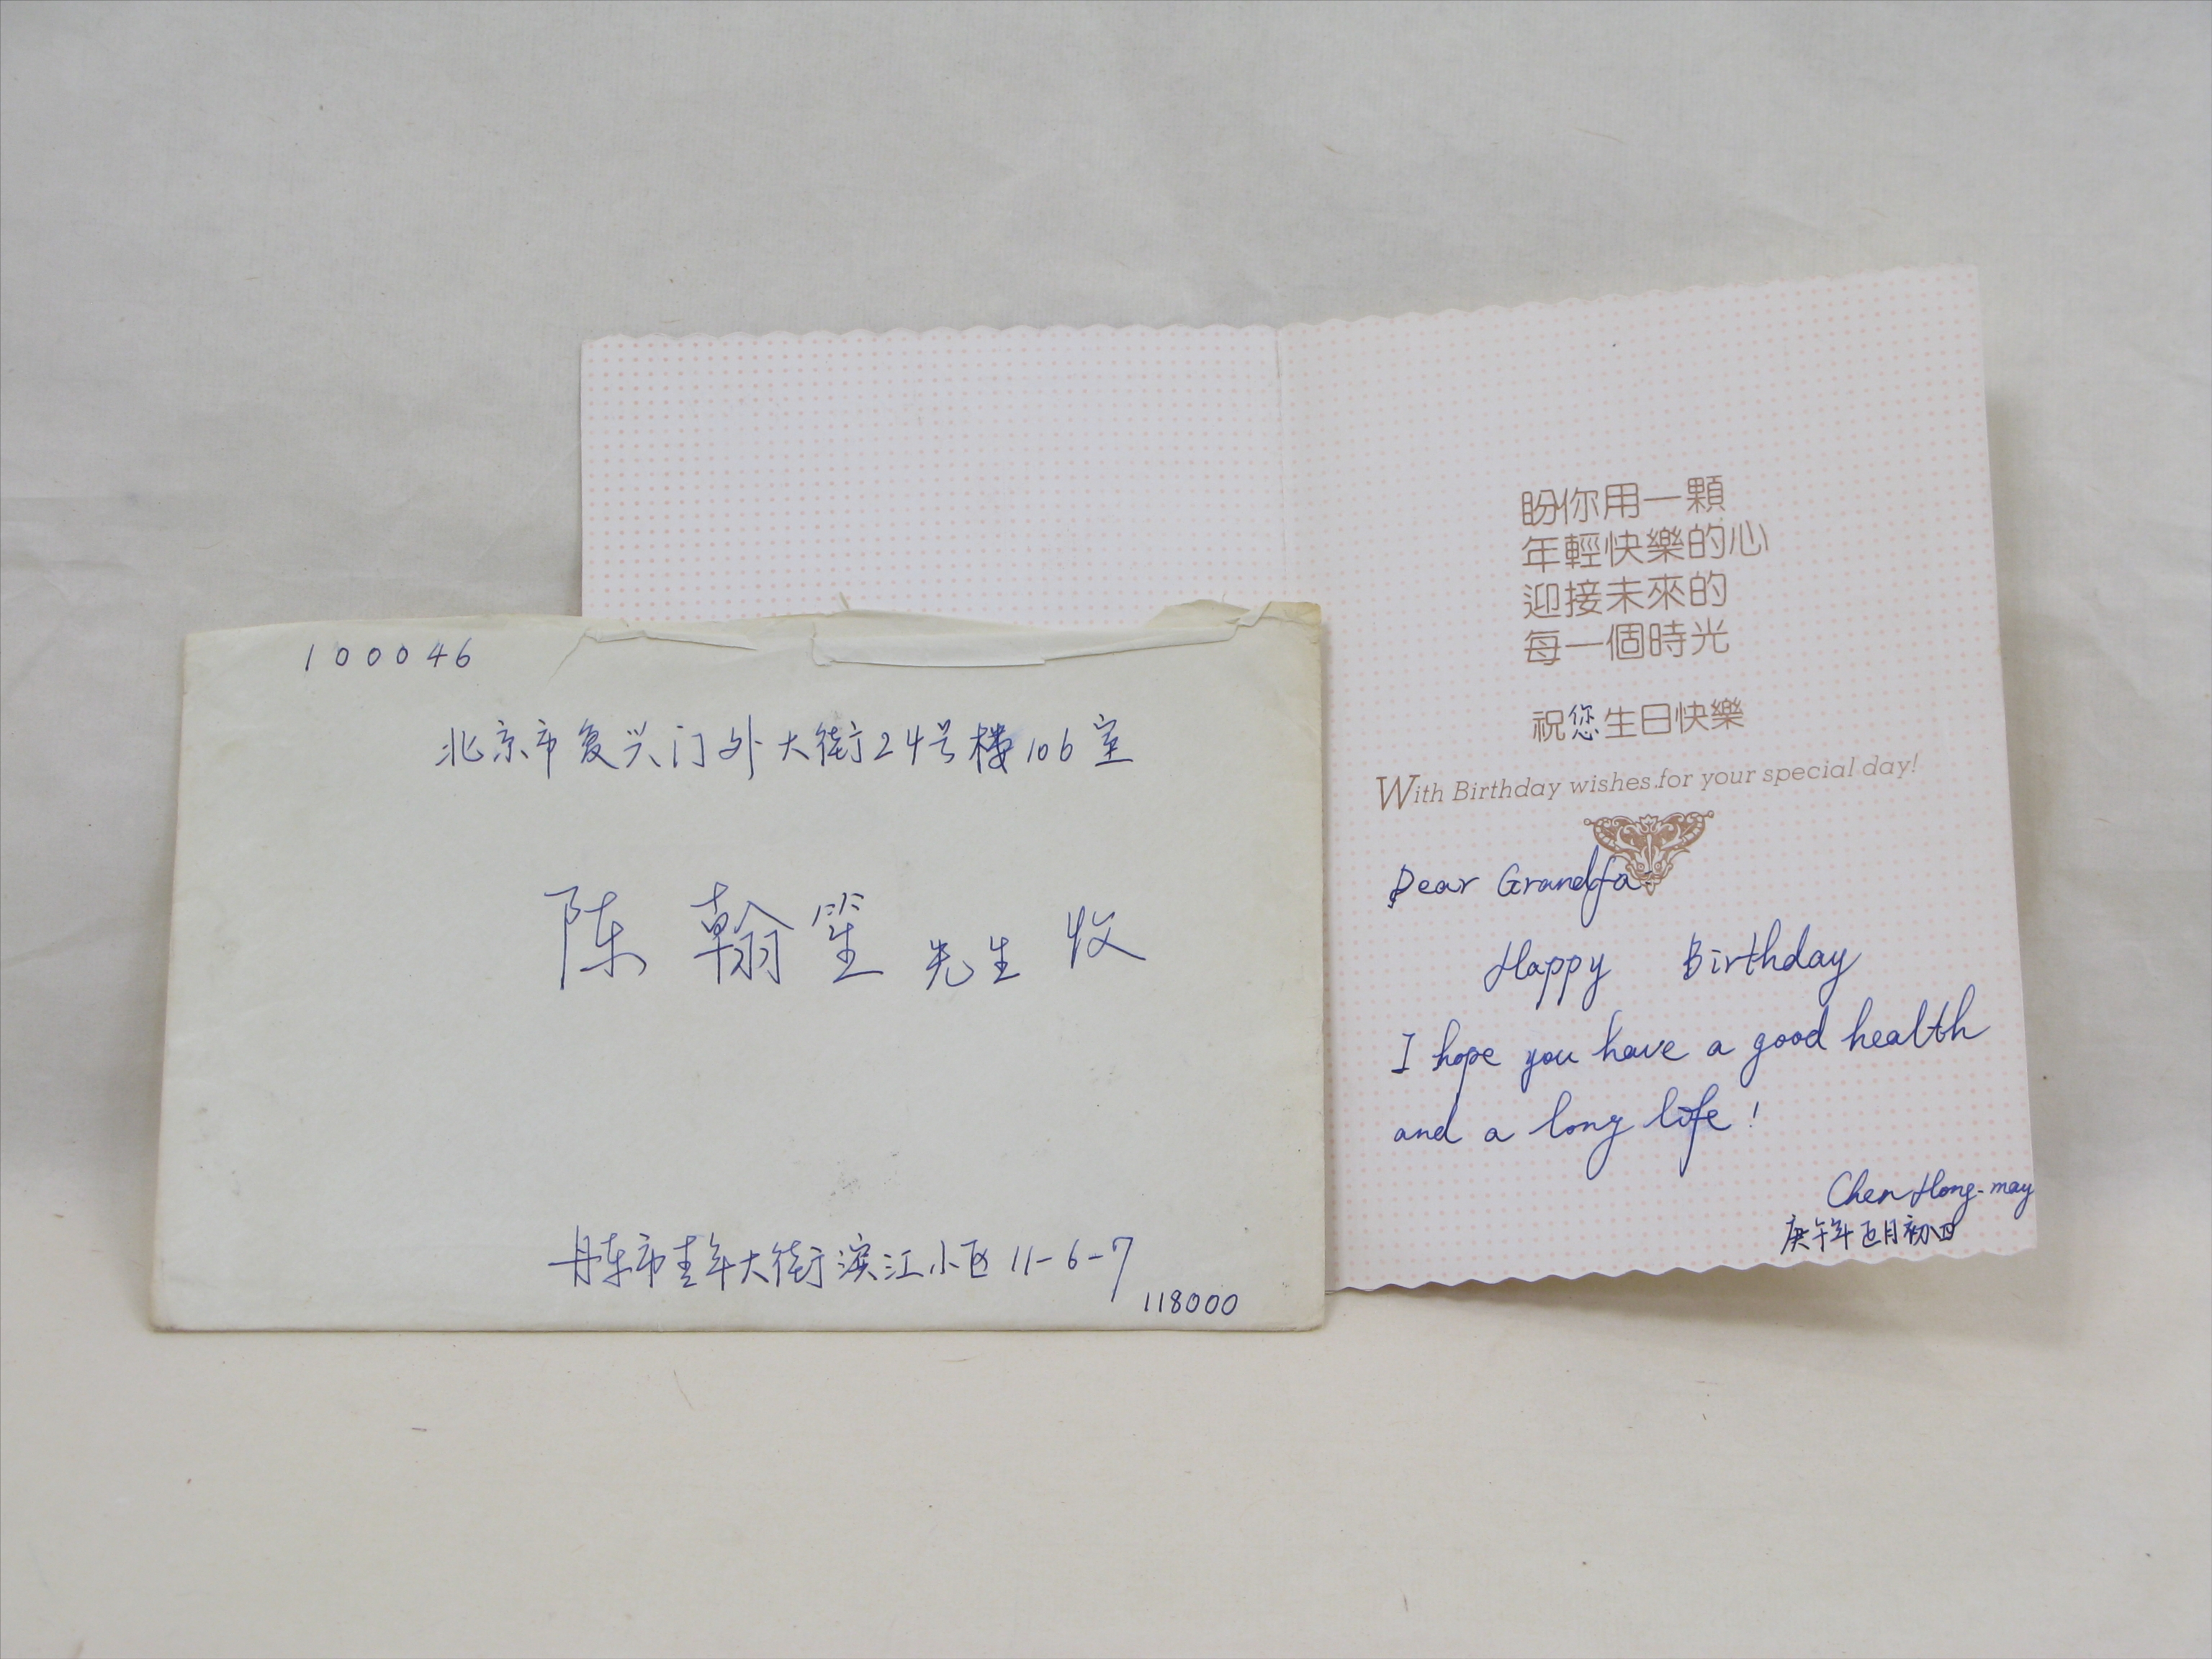 100046
北京市复兴门外大街24号楼106室
陈翰笙先生 收
丹东市青年大街滨江小区11-6-7
118000
盼你用一顆
年輕快樂的心
迎接未來的
每一個時光
祝您生日快樂
With Birthday wishes for your special day!
Dear Grandfa:
Happy Birthday
I hope you have a good health
and a long life!
Chen Hong-may
庚午年五月初四